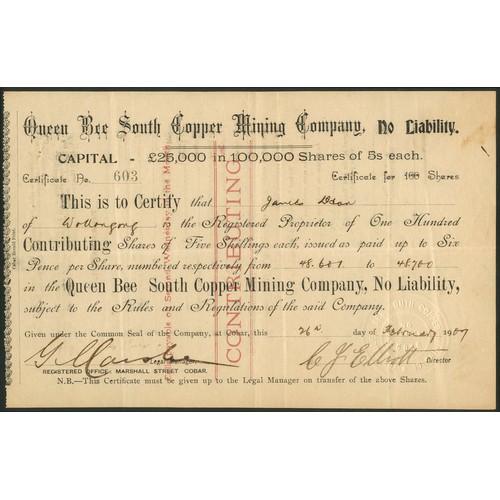 Queen Bee South Copper Mining Company, No Liability.
CAPITAL - £25,000 in 100,000 Shares of 5s each.
Certificate No. 603 Certificate for 100 Shares
This is to Certify that James
of Wollongong the Registered Proprietor of One Hundred
Contributing Shares of Five Shillings each, issued as paid up to Six
Pence per Share, numbered respectively from 48.601 to 48700
in the Queen Bee South Copper Mining Company, No Liability,
subject to the Rules and Regulations of the said Company.
Given under the Common Seal of the Company, at Cobar, this 26th day of February 1907
C J Elliott
Director
REGISTERED OFFICE: MARSHALL STREET COBAR.
N.B.—This Certificate must be given up to the Legal Manager on transfer of the above Shares.
CONTRIBUTING